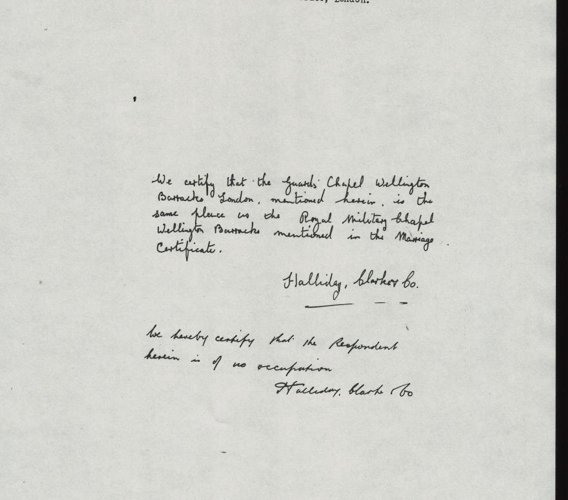 London.
We certify that the Guards' Chapel Wellington
Barracks London, mentioned herein, is the
same place as the Royal Military Chapel
Wellington Barracks mentioned in the Marriage
Certificate.
Halliday, Clarke & Co.
We hereby certify that the Respondent
herein is of no occupation
Halliday, Clarke & Co